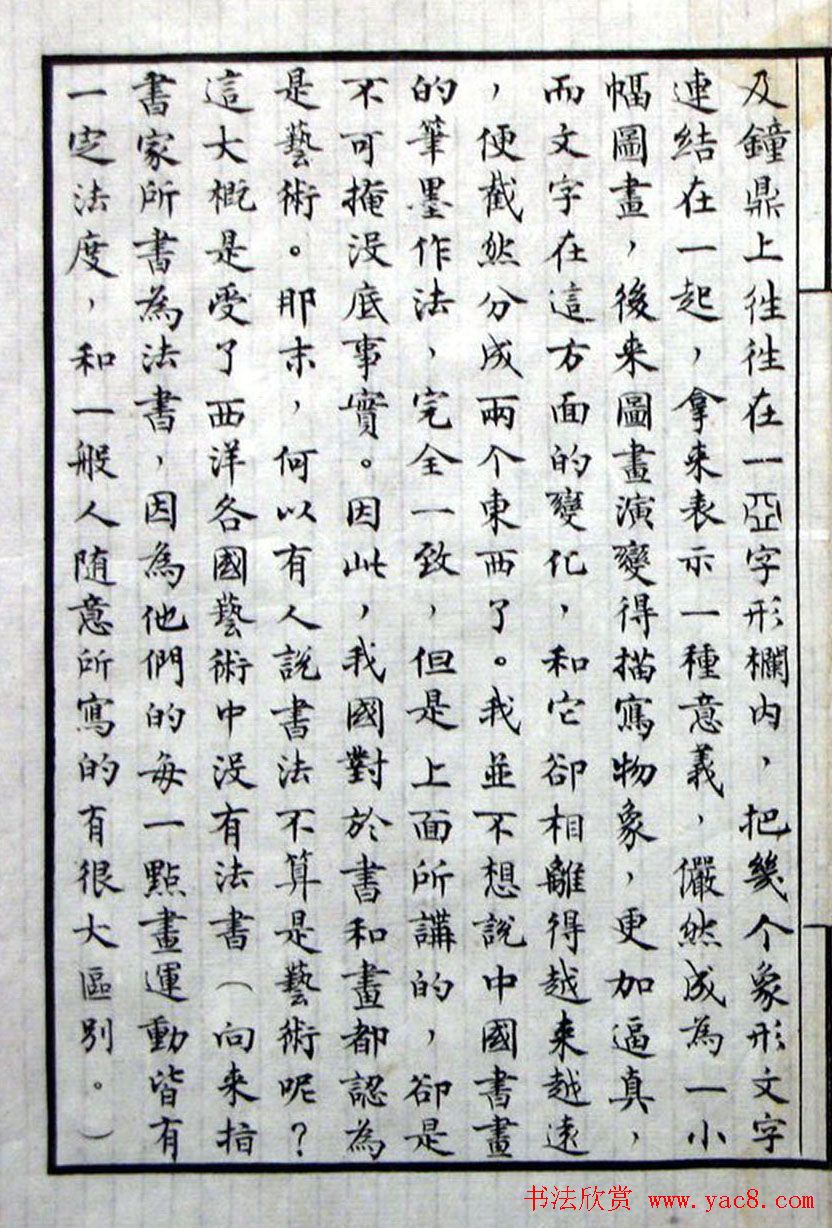 及鐘鼎上徃徃在一亞字形欄内，把幾个象形文字
連結在一起，拿来表示一種意義，儼然成為一小
幅圖畫，後来圖畫演變得描寫物象，更加逼真，
而文字在這方面的變化，和它卻相離得越来越遠
，便截然分成兩个東西了。我並不想說中國書畫
的筆墨作法，完全一致，但是上面所講的，卻是
不可掩没底事實。因此，我國對於書和畫都認為
是藝術。那末，何以有人說書法不算是藝術呢？
這大概是受了西洋各國藝術中没有法書（向来指
書家所書為法書，因為他們的每一點畫運動皆有
一定法度，和一般人随意所寫的有很大區别。）
书法欣赏 www.yac8.com